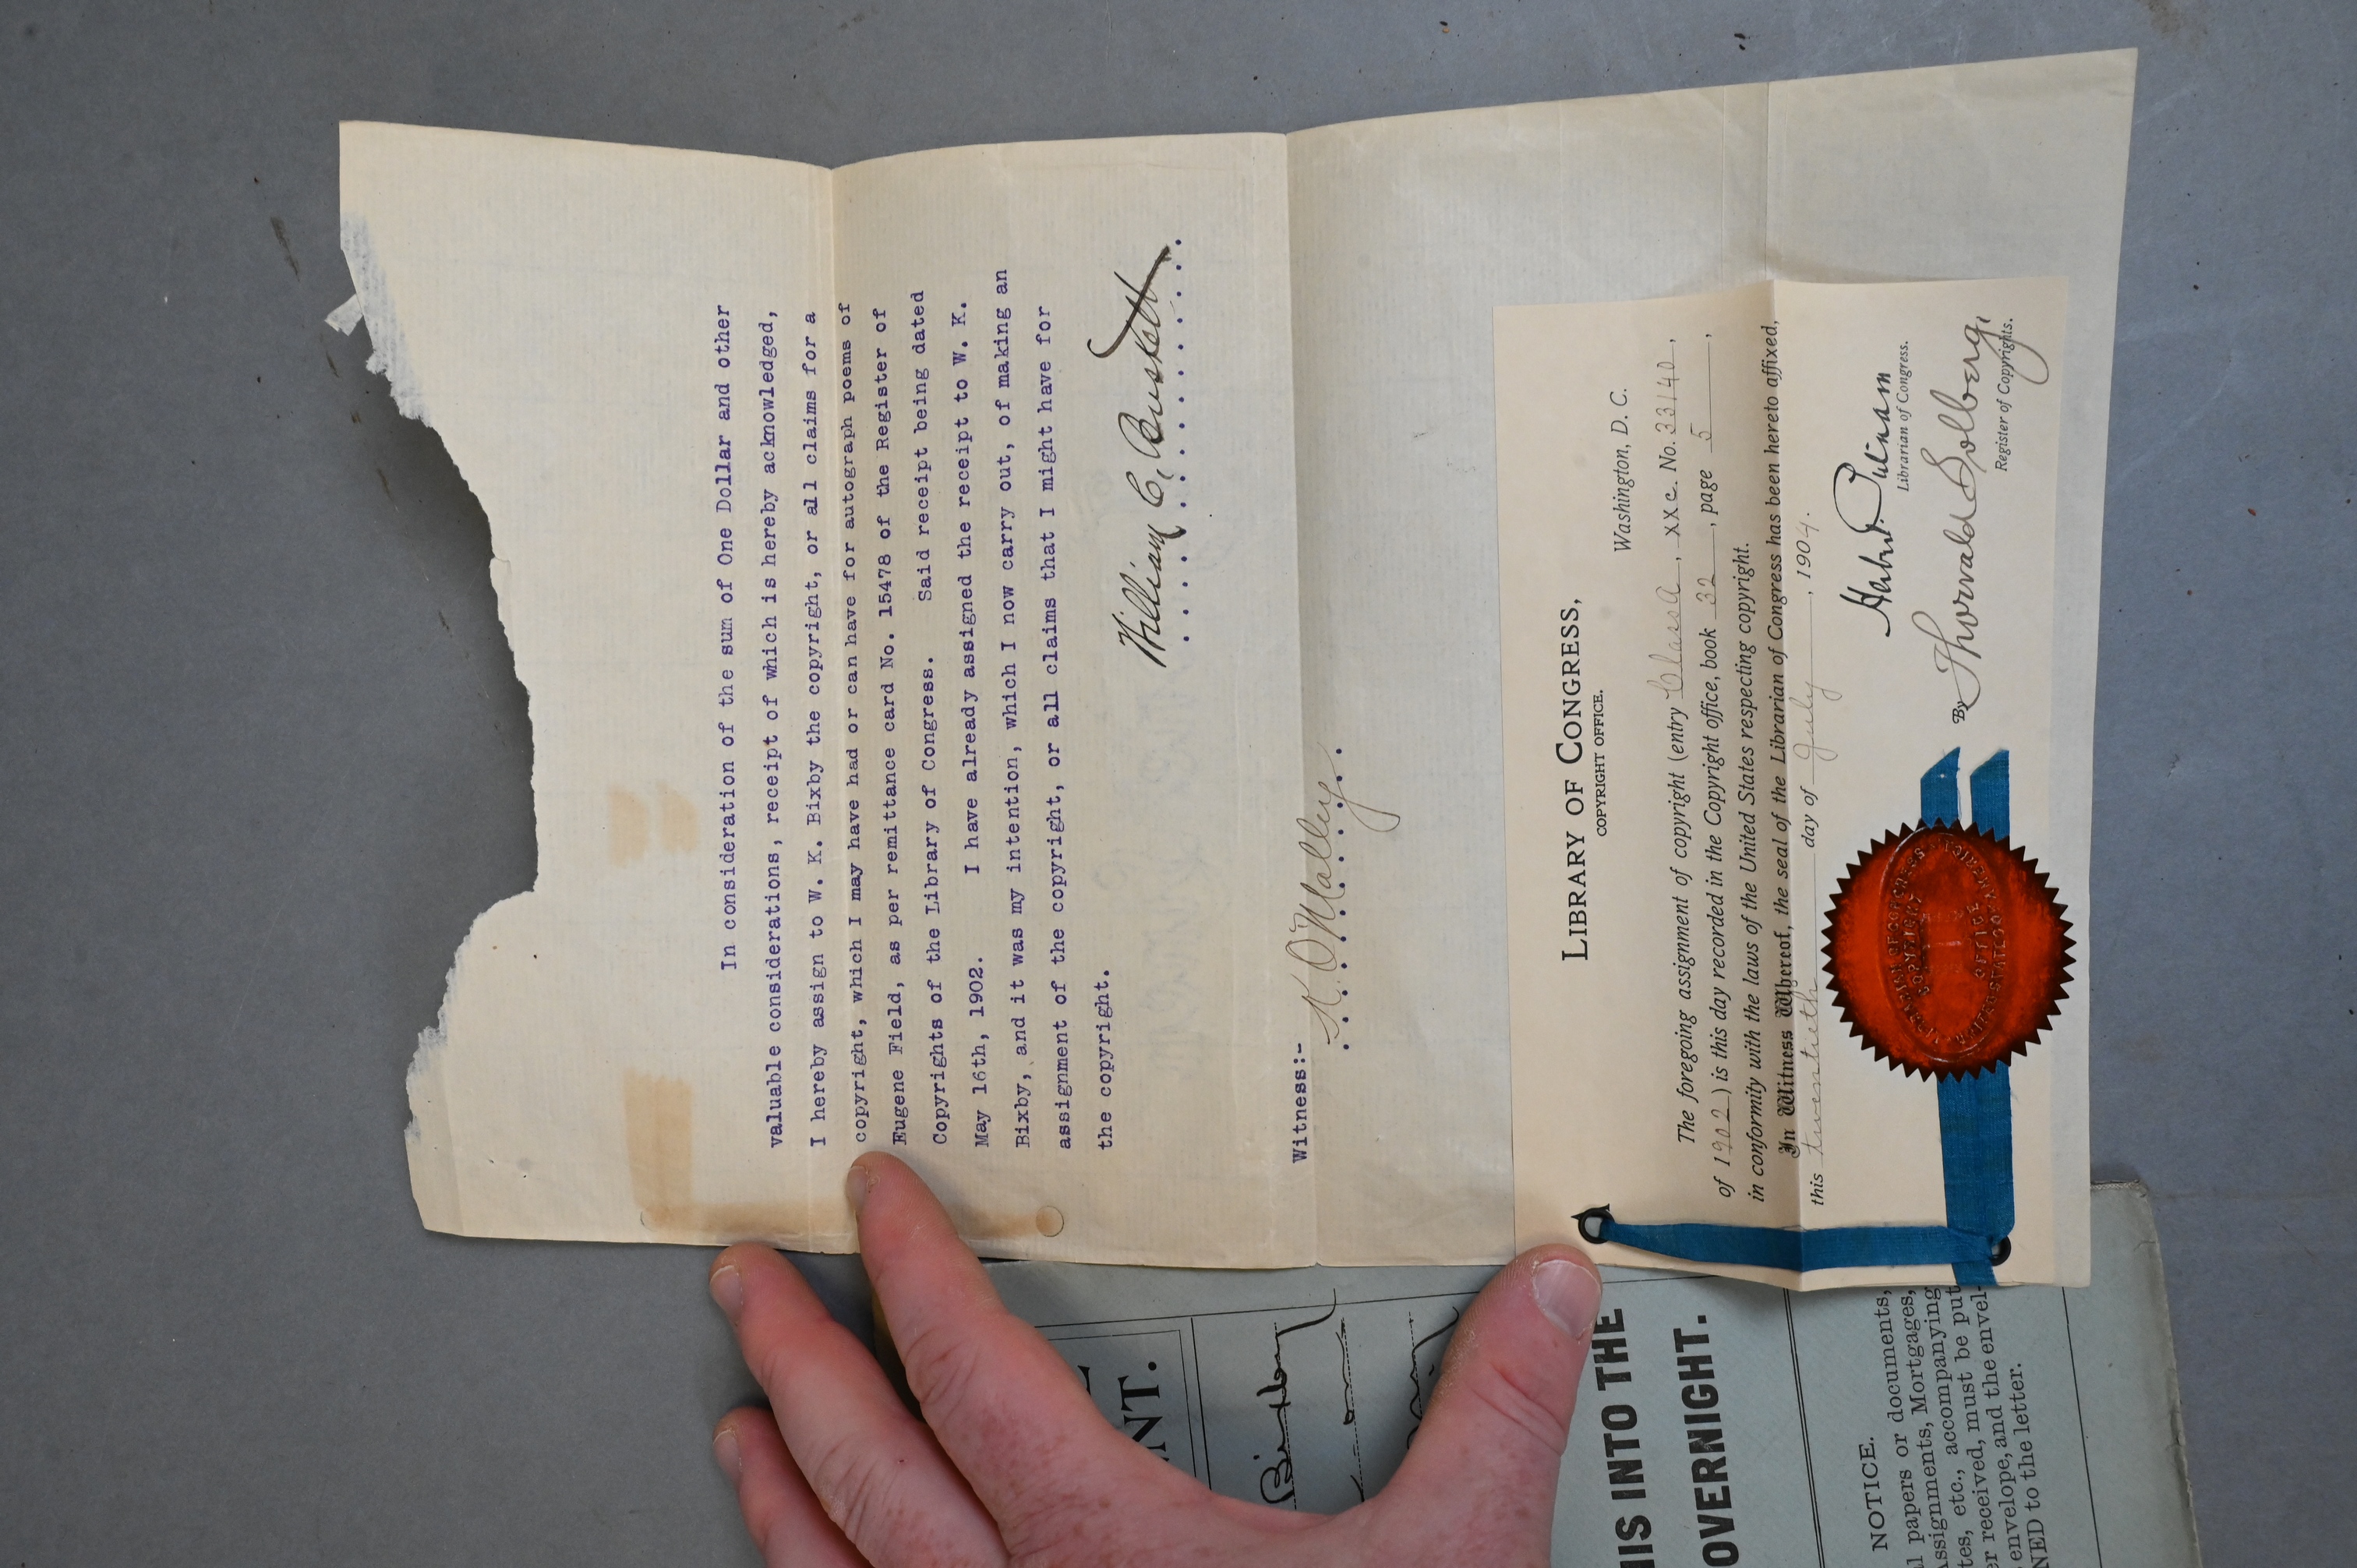 In consideration of the sum of One Dollar and other
valuable considerations, receipt of which is hereby acknowledged,
I hereby assign to W. K. Bixby the copyright, or all claims for a
copyright, which I may have had or can have for autograph poems of
Eugene Field, as per remittance card No. 15478 of the Register of
Copyrights of the Library of Congress. Said receipt being dated
May 16th, 1902. I have already assigned the receipt to W. K.
Bixby, and it was my intention, which I now carry out, of making an
assignment of the copyright, or all claims that I might have for
the copyright.
William C. Buskett
Witness:-
K. O'Malley
LIBRARY OF CONGRESS,
COPYRIGHT OFFICE.
Washington, D. C.
The foregoing assignment of copyright (entry Class A, xxc. No. 33140,
of 1902) is this day recorded in the Copyright office, book 32, page 5,
in conformity with the laws of the United States respecting copyright.
In Witness Whereof, the seal of the Librarian of Congress has been hereto affixed,
this twentieth day of July, 1904.
Herbert Putnam
Librarian of Congress.
By Thorvald Solberg,
Register of Copyrights.
COPYRIGHT
OFFICE
NT.
Bixby
HIS INTO THE
OVERNIGHT.
NOTICE.
papers or documents,
Assignments, Mortgages,
tes, etc., accompanying
er received, must be put
envelope, and the envel-
NED to the letter.